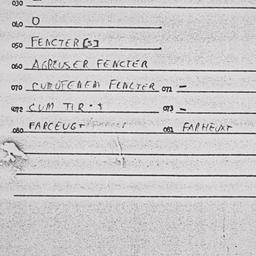 030
040 O
050 FENCTER [S]
060 AGREUSER FENCTER
070 FENCTER 071 -
072 CUM TIR-1 073 -
080 FARCEUGT 081 FARHEUXT